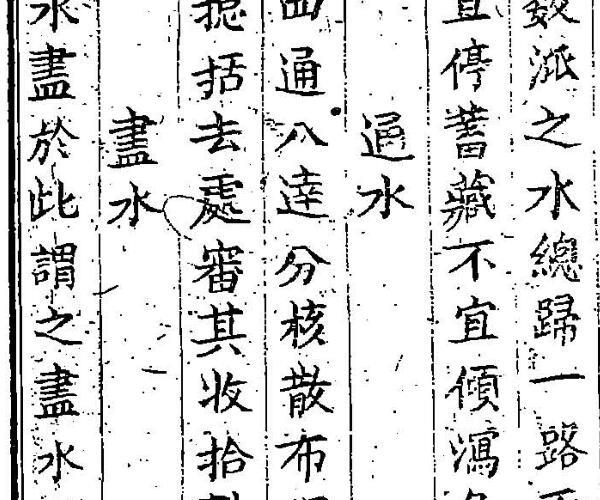 數派之水總歸一路
宜停蓄藏不宜傾瀉
通水
四通八達分核散布
總括去處審其收拾
盡水
水盡於此謂之盡水